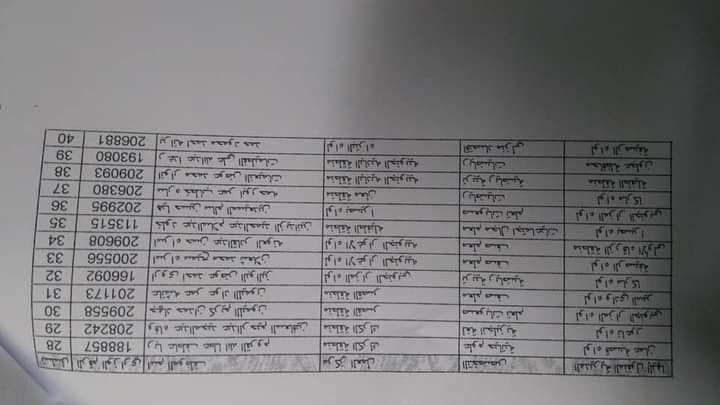 تسلسل الرقم الوزاري اسم الموظف مركز العمل التخصص المديرية المنقول إليها
28 188857 ربا عاطف عطا الله القروم منطقة الكرك علوم حياتية لواء قصبة عمان
29 208242 وفاء عبدالمجيد عبدالرحيم السعافين منطقة الكرك لغة انجليزية لواء ناعور
30 209558 جهاد حمدان كريم الليمون منطقة القصر صعوبات تعلم لواء المزار الجنوبي
31 201173 عائشه عمر عواد الليمون منطقة القصر معلم صف لواء وادي السير
32 166092 اروى احمد عوض البواليز لواء المزار الجنوبي تربية رياضية لواء ماركا
33 200556 اسراء سميح محمد شعلان لواء الاغوار الجنوبيه معلم صف لواء الرصيفة
34 209608 اسراء حسن عبدالقادر العونه لواء الاغوار الجنوبيه معلم صف منطقة الزرقاء الأولى
35 113515 خلود عبدالسلام عبدالحميد الزيدانين منطقة الطفيله معلم مجال اجتماعيات لواء بصيرا
36 202995 هيا حسين سالم المسيعدين لواء بصيرا صعوبات تعلم لواء المزار الجنوبي
37 206380 ساره خطاب عمر ابورحمه منطقة معان رياضيات لواء ماركا
38 209093 انوار محمد عوض النعيمات منطقة الباديه الجنوبيه تربية رياضية منطقة الطفيلة
39 193080 رغدا عبدالله علي القطيمات منطقة الباديه الجنوبيه رياضيات محافظة عجلون
40 206881 احمد محمود حمد لواء البتراء اقتصاد منزلي لواء الرصيفة